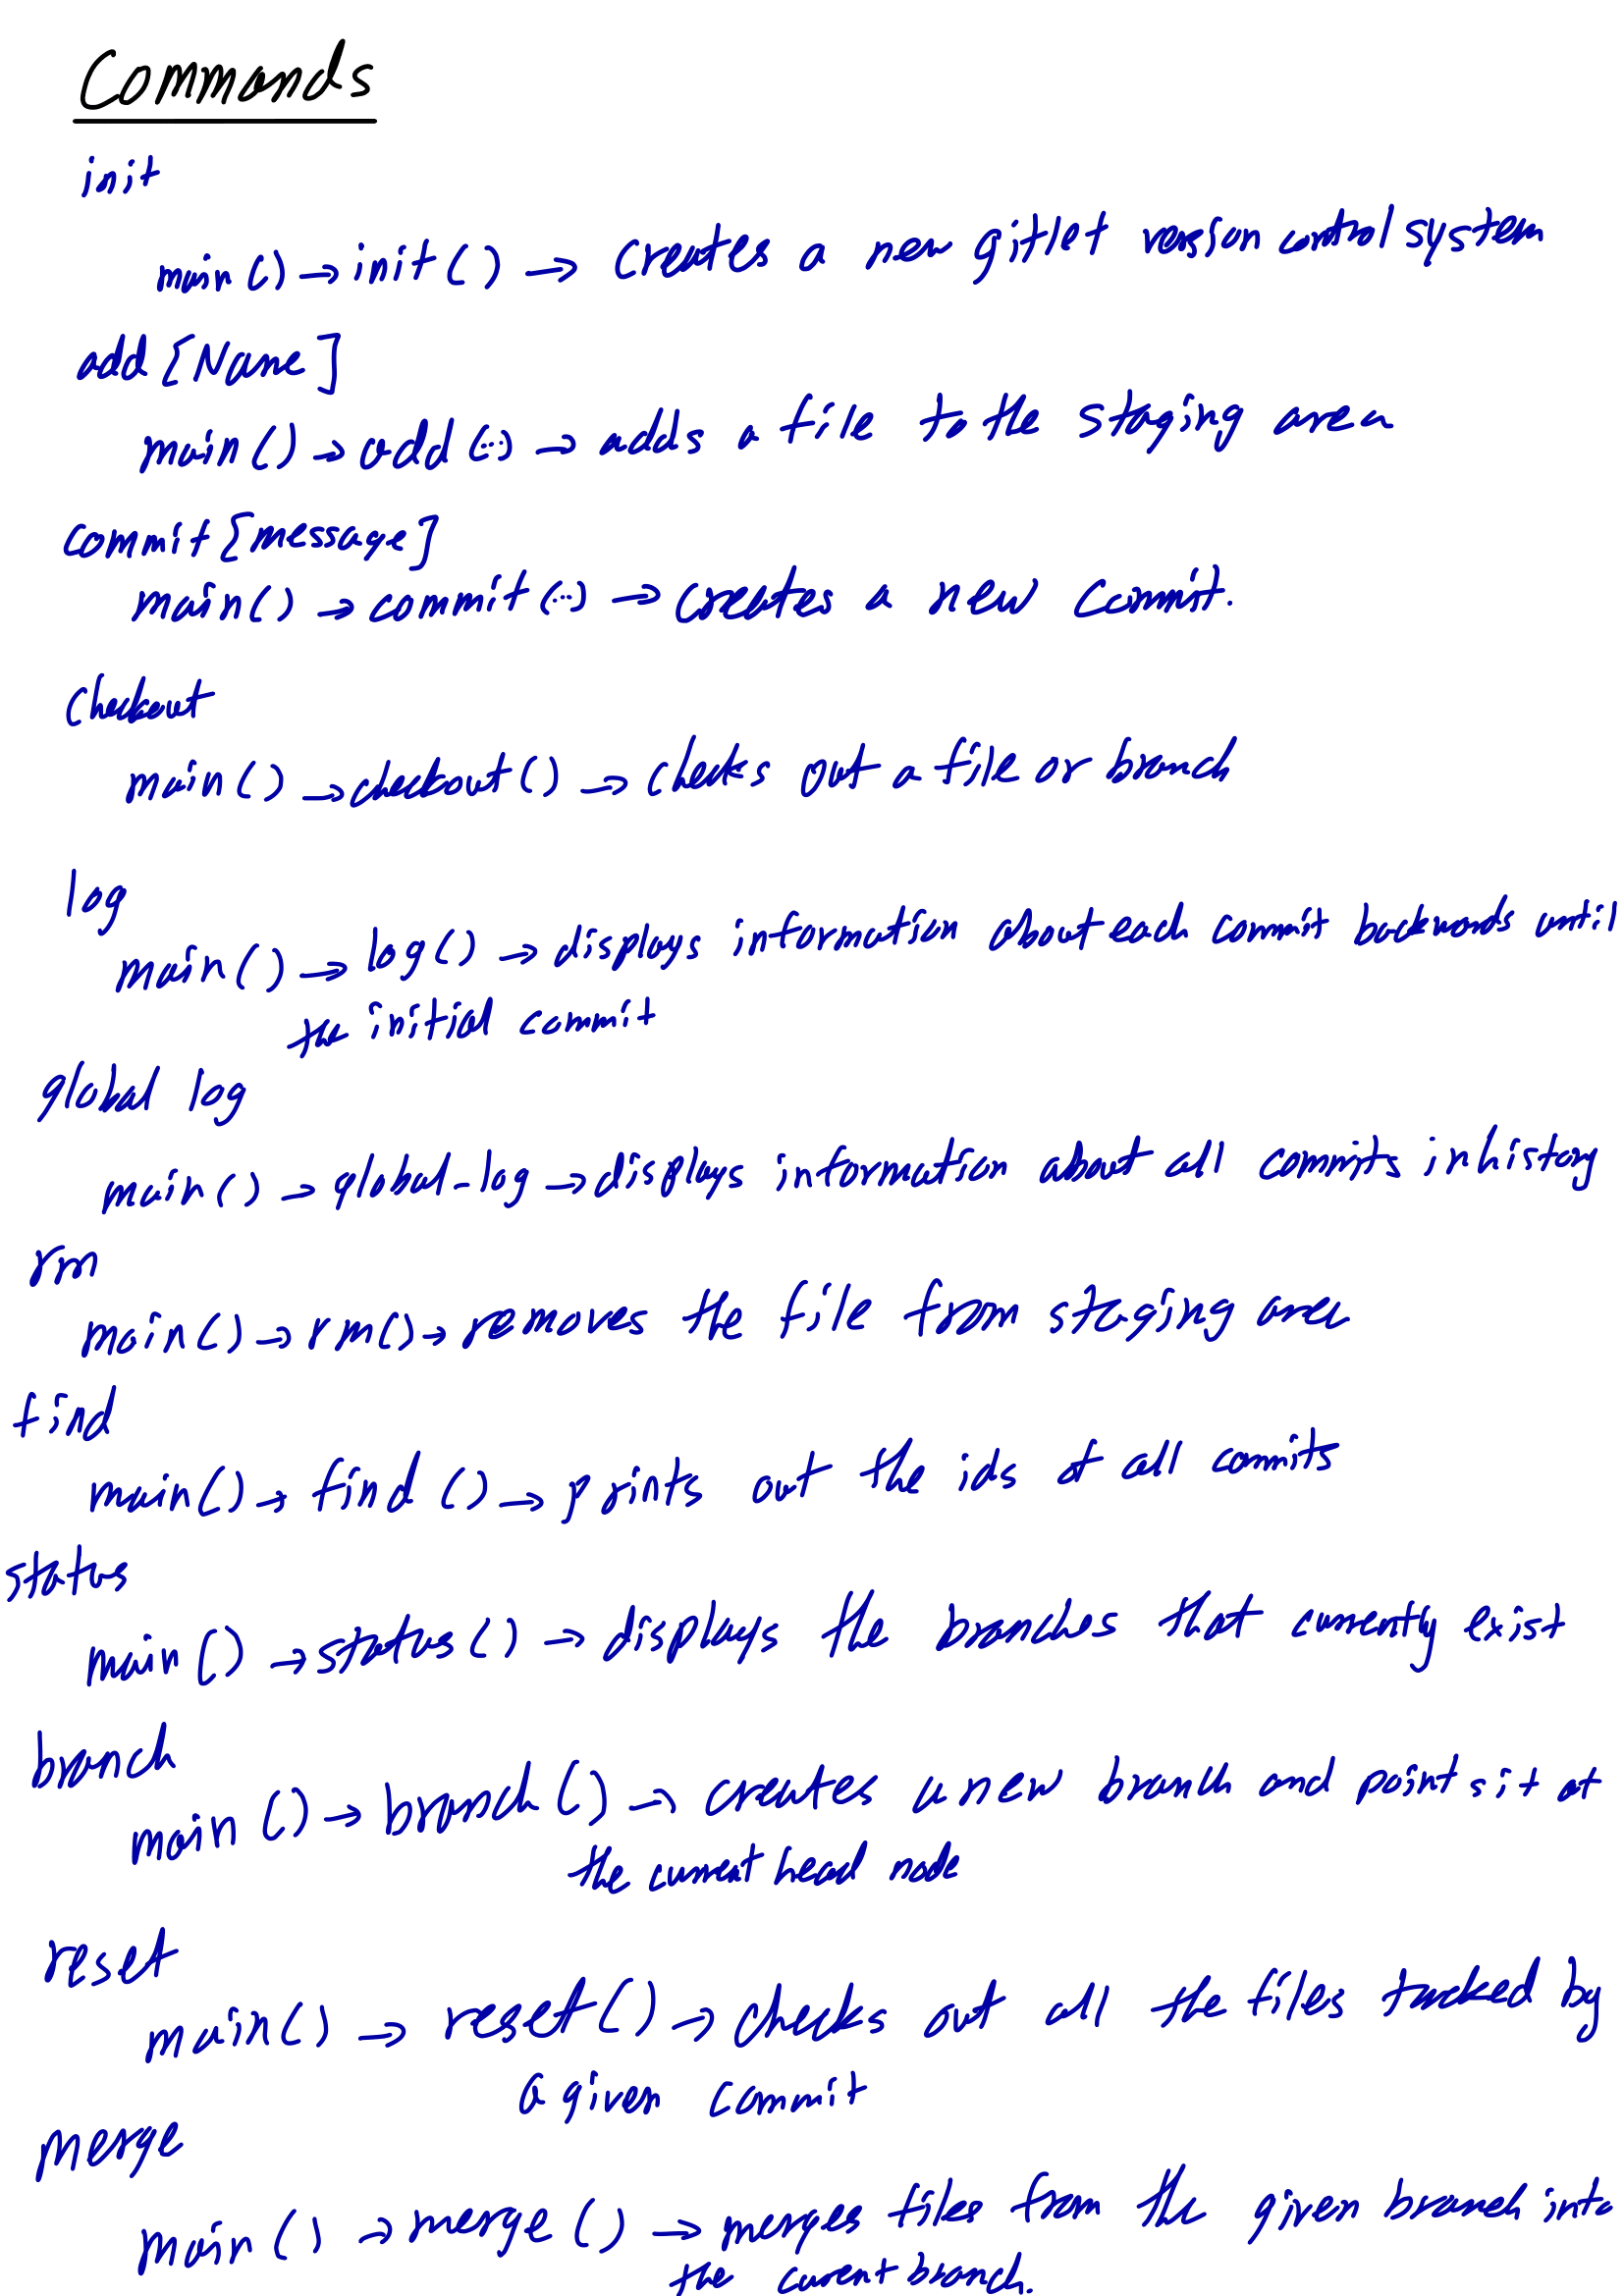 Commands
init
main() → init() → creates a new gitlet version control system
add [Name]
main() → add (...) → adds a file to the staging area
commit [message]
main() → commit (...) → creates a new commit.
Checkout
main() → checkout() → checks out a file or branch
log
main() → log() → displays information about each commit backwards until
the initial commit
global log
main() → global-log → displays information about all commits in history
rm
main() → rm() → removes the file from staging area
find
main() → find () → prints out the ids of all commits
status
main() → status() → displays the branches that currently exist
branch
main () → branch () → creates a new branch and points it at
the current head node
reset
main() → reset() → checks out all the files tracked by
a given commit
merge
main () → merge () → merges files from the given branch into
the curent branch.